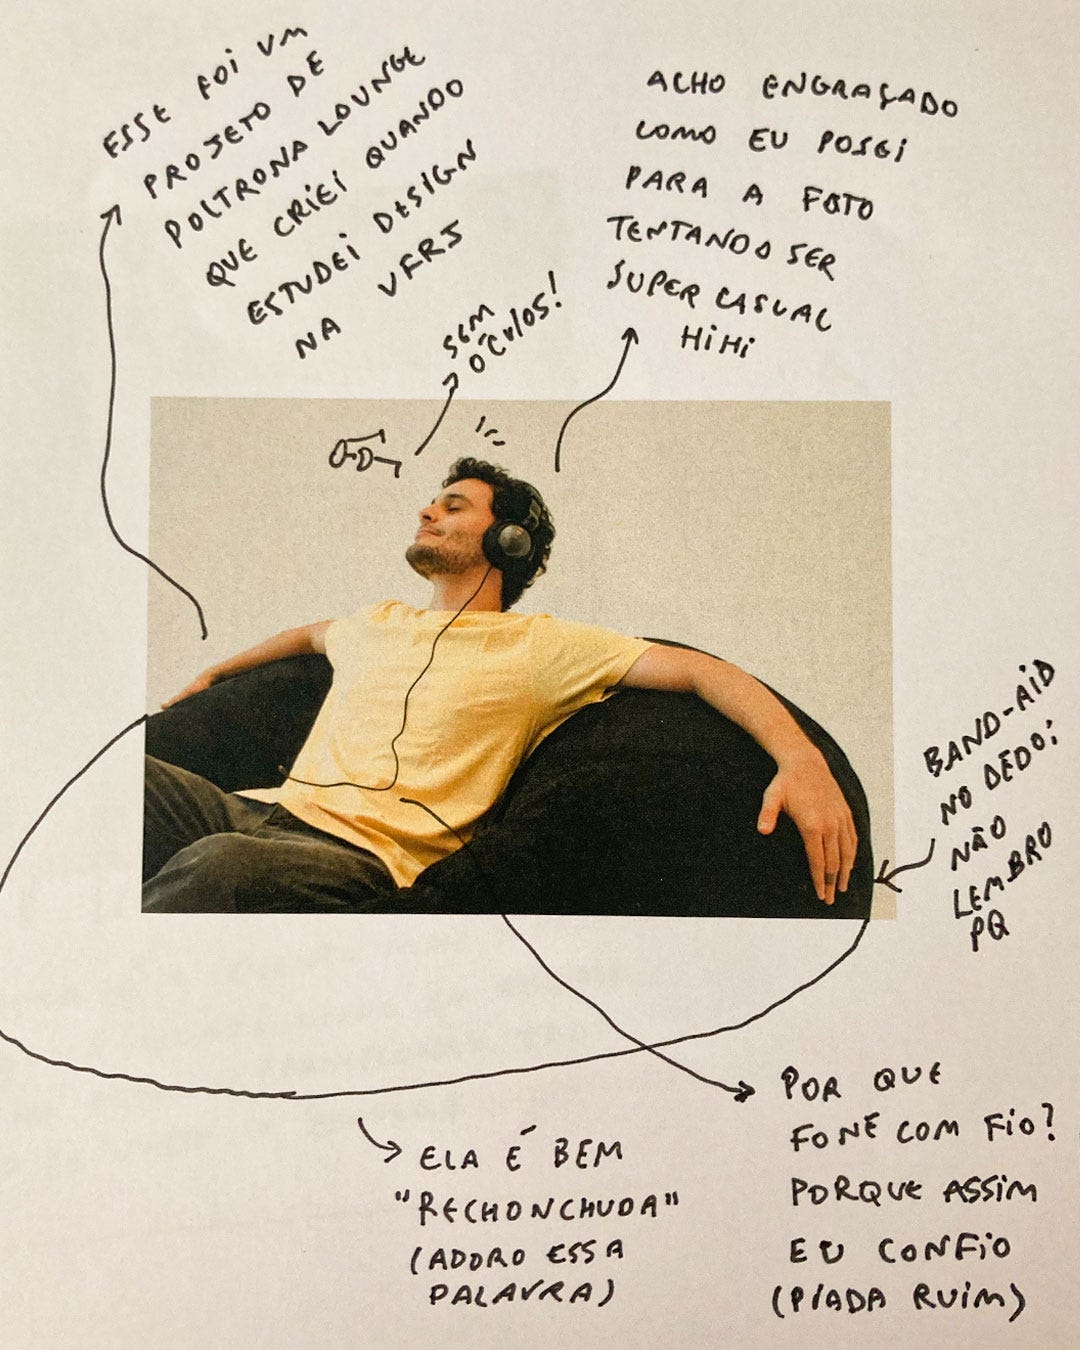 ESSE FOI UM
PROJETO DE
POLTRONA LOUNGE
QUE CRIEI QUANDO
ESTUDEI DESIGN
NA UFRJ
SEM
ÓCULOS!
ACHO ENGRAÇADO
COMO EU POSEI
PARA A FOTO
TENTANDO SER
SUPER CASUAL
HIHI
BAND-AID
NO DEDO;
NÃO
LEMBRO
PQ
ELA É BEM
"RECHONCHUDA"
(ADORO ESSA
PALAVRA)
POR QUE
FONE COM FIO?
PORQUE ASSIM
EU CONFIO
(PIADA RUIM)